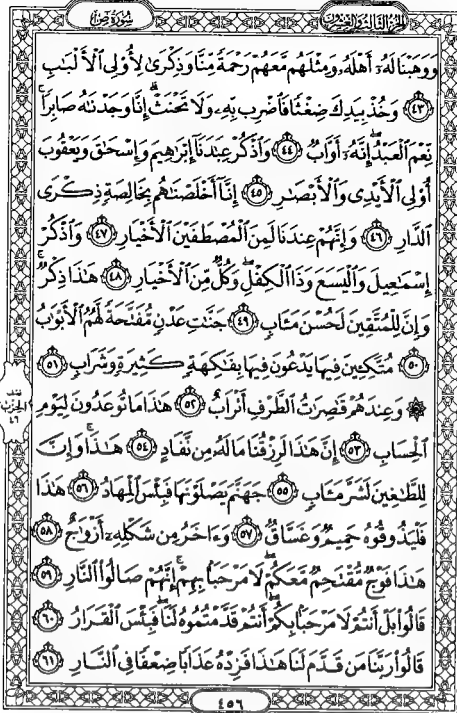 الجزء الثالث والعشرون
سورة ص
وَوَهَبْنَا لَهُۥٓ أَهْلَهُۥ وَمِثْلَهُم مَّعَهُمْ رَحْمَةً مِّنَّا وَذِكْرَىٰ لِأُو۟لِى ٱلْأَلْبَـٰبِ
﴿٤٣﴾ وَخُذْ بِيَدِكَ ضِغْثًا فَٱضْرِب بِّهِۦ وَلَا تَحْنَثْ ۗ إِنَّا وَجَدْنَـٰهُ صَابِرًا ۚ
نِّعْمَ ٱلْعَبْدُ ۖ إِنَّهُۥٓ أَوَّابٌ ﴿٤٤﴾ وَٱذْكُرْ عِبَـٰدَنَآ إِبْرَٰهِيمَ وَإِسْحَـٰقَ وَيَعْقُوبَ
أُو۟لِى ٱلْأَيْدِى وَٱلْأَبْصَـٰرِ ﴿٤٥﴾ إِنَّآ أَخْلَصْنَـٰهُم بِخَالِصَةٍ ذِكْرَى
ٱلدَّارِ ﴿٤٦﴾ وَإِنَّهُمْ عِندَنَا لَمِنَ ٱلْمُصْطَفَيْنَ ٱلْأَخْيَارِ ﴿٤٧﴾ وَٱذْكُرْ
إِسْمَـٰعِيلَ وَٱلْيَسَعَ وَذَا ٱلْكِفْلِ ۖ وَكُلٌّ مِّنَ ٱلْأَخْيَارِ ﴿٤٨﴾ هَـٰذَا ذِكْرٌ ۚ
وَإِنَّ لِلْمُتَّقِينَ لَحُسْنَ مَـَٔابٍ ﴿٤٩﴾ جَنَّـٰتِ عَدْنٍ مُّفَتَّحَةً لَّهُمُ ٱلْأَبْوَٰبُ
﴿٥٠﴾ مُتَّكِـِٔينَ فِيهَا يَدْعُونَ فِيهَا بِفَـٰكِهَةٍ كَثِيرَةٍ وَشَرَابٍ ﴿٥١﴾
۞ وَعِندَهُمْ قَـٰصِرَٰتُ ٱلطَّرْفِ أَتْرَابٌ ﴿٥٢﴾ هَـٰذَا مَا تُوعَدُونَ لِيَوْمِ
ٱلْحِسَابِ ﴿٥٣﴾ إِنَّ هَـٰذَا لَرِزْقُنَا مَا لَهُۥ مِن نَّفَادٍ ﴿٥٤﴾ هَـٰذَا ۚ وَإِنَّ
لِلطَّـٰغِينَ لَشَرَّ مَـَٔابٍ ﴿٥٥﴾ جَهَنَّمَ يَصْلَوْنَهَا فَبِئْسَ ٱلْمِهَادُ ﴿٥٦﴾ هَـٰذَا
فَلْيَذُوقُوهُ حَمِيمٌ وَغَسَّاقٌ ﴿٥٧﴾ وَءَاخَرُ مِن شَكْلِهِۦٓ أَزْوَٰجٌ ﴿٥٨﴾
هَـٰذَا فَوْجٌ مُّقْتَحِمٌ مَّعَكُمْ ۖ لَا مَرْحَبًۢا بِهِمْ ۚ إِنَّهُمْ صَالُوا۟ ٱلنَّارِ ﴿٥٩﴾
قَالُوا۟ بَلْ أَنتُمْ لَا مَرْحَبًۢا بِكُمْ ۖ أَنتُمْ قَدَّمْتُمُوهُ لَنَا ۖ فَبِئْسَ ٱلْقَرَارُ ﴿٦٠﴾
قَالُوا۟ رَبَّنَا مَن قَدَّمَ لَنَا هَـٰذَا فَزِدْهُ عَذَابًا ضِعْفًا فِى ٱلنَّارِ ﴿٦١﴾
نصف
الحزب
٤٦
٤٥٦